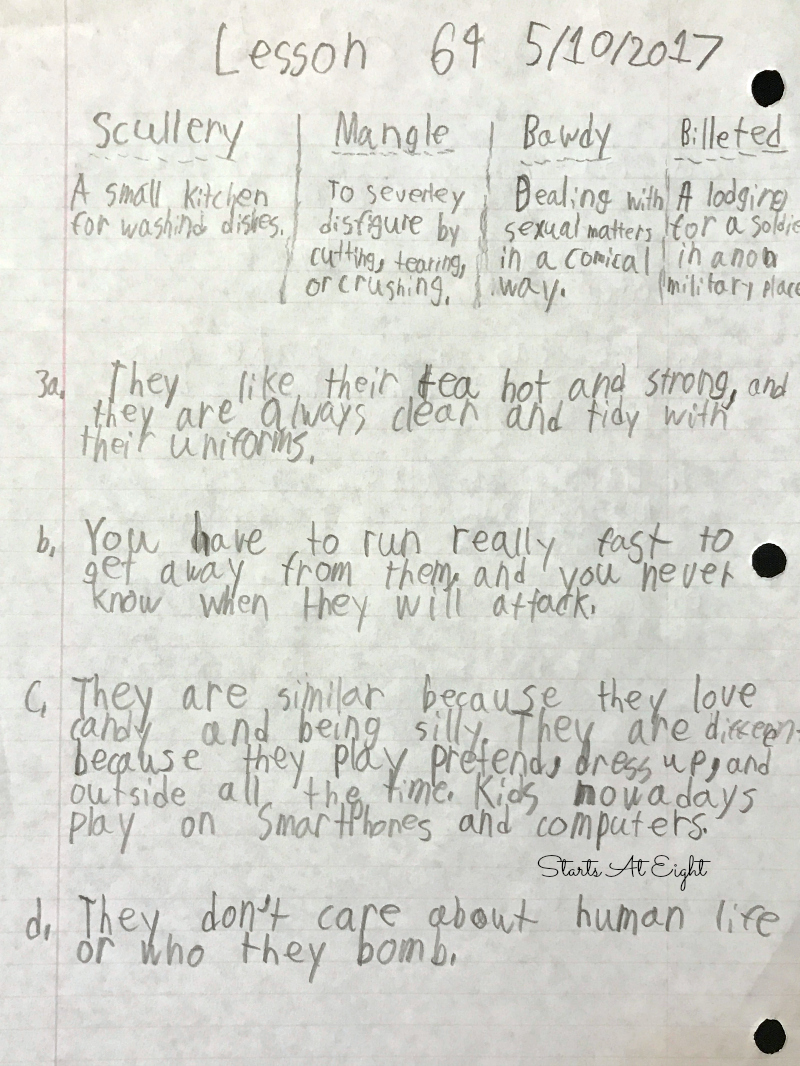 Lesson 64 5/10/2017
Scullery
A small kitchen
for washind dishes.
Mangle
To severley
disfigure by
cutting, tearing,
or crushing.
Bawdy
Dealing with
sexual matters
in a comical
way.
Billeted
A lodging
for a soldie
in a non
military place
3a. They like their tea hot and strong, and
they are always clean and tidy with
their uniforms.
b. You have to run really fast to
get away from them, and you never
know when they will attack.
c. They are similar because they love
candy and being silly. They are differen
because they play pretend, dress up, and
outside all the time. Kids nowadays
play on Smartphones and computers.
Starts At Eight
d. They don't care about human life
or who they bomb.